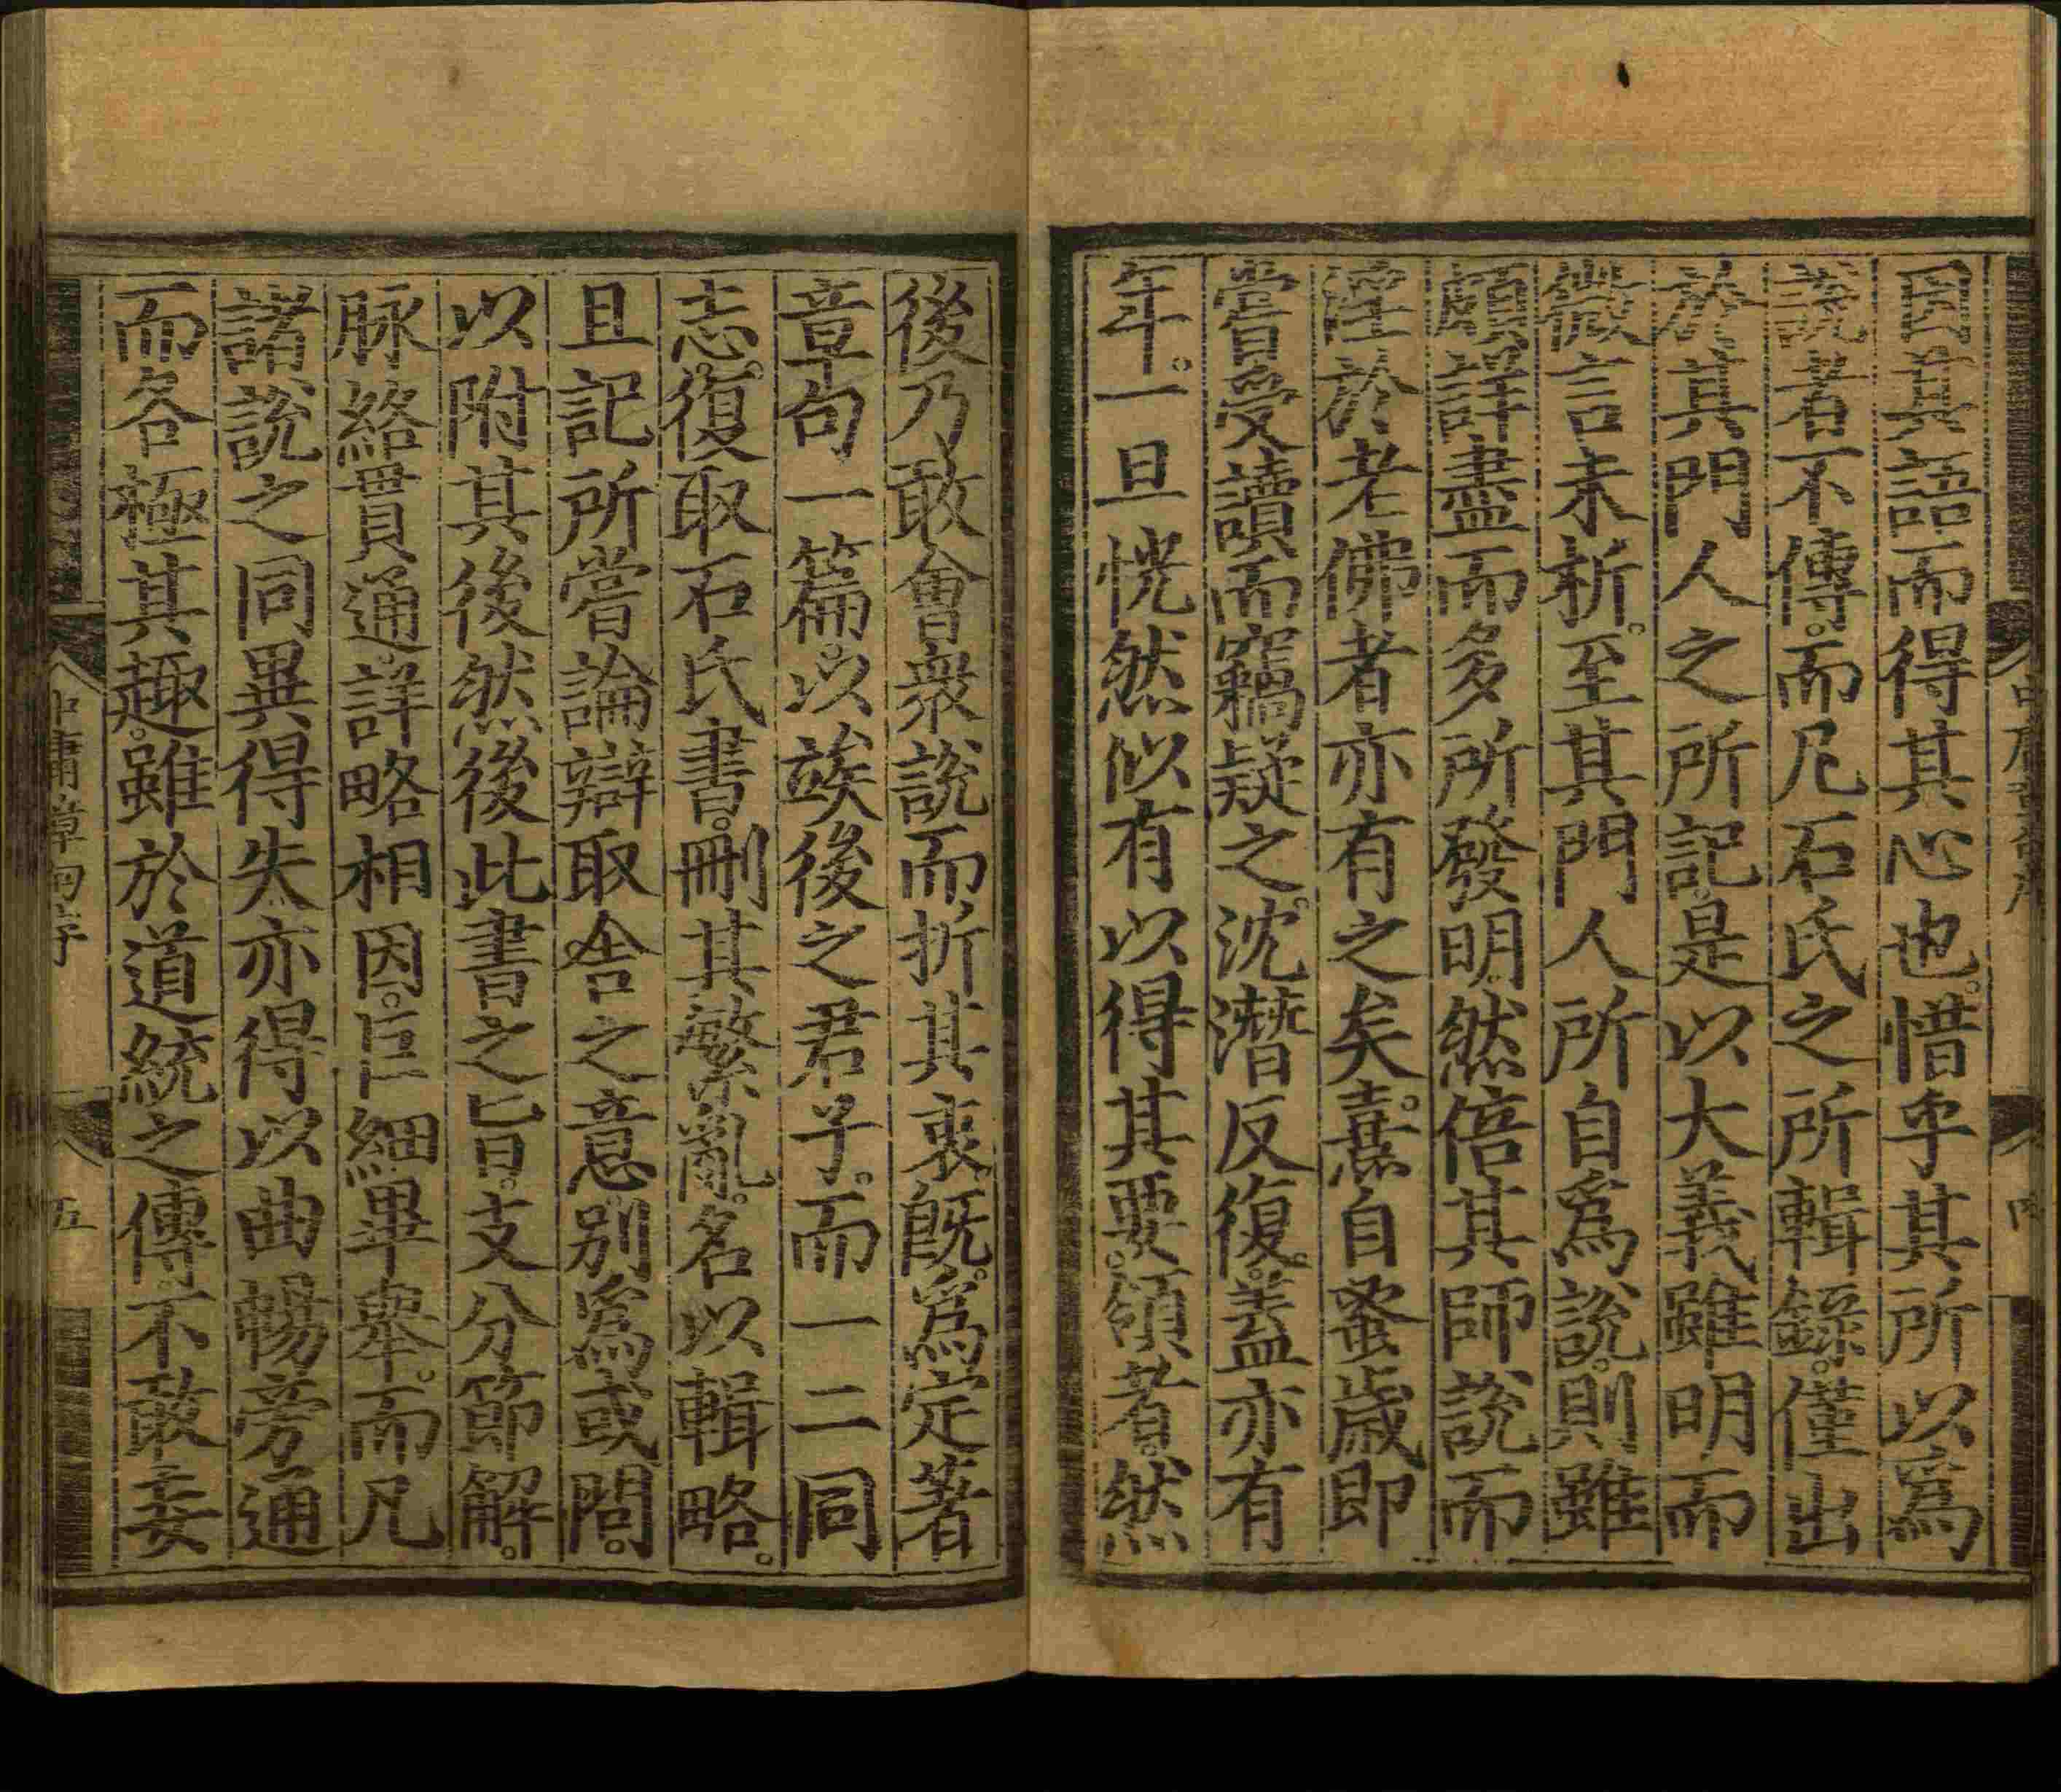 因其語而得其心也。惜乎其所以爲
說者不傳。而凡石氏之所輯錄。僅出
於其門人之所記。是以大義雖明而
微言未析。至其門人所自爲說。則雖
頗詳盡而多所發明。然倍其師說而
淫於老佛者亦有之矣。熹自蚤歲即
嘗受讀而竊疑之。沈潛反復。蓋亦有
年。一旦恍然似有以得其要。領者。然
後乃敢會衆說而折其衷。旣。爲定著
章句一篇。以竢後之君子。而一二同
志。復取石氏書。刪其繁亂。名以輯略。
且記所嘗論辯取舍之意別爲或問。
以附其後然後此書之旨。支分節解。
脉絡貫通。詳略相因。巨細畢舉。而凡
諸說之同異得失亦得以曲暢旁通
而各極其趣。雖於道統之傳不敢妄
中庸章句序
五